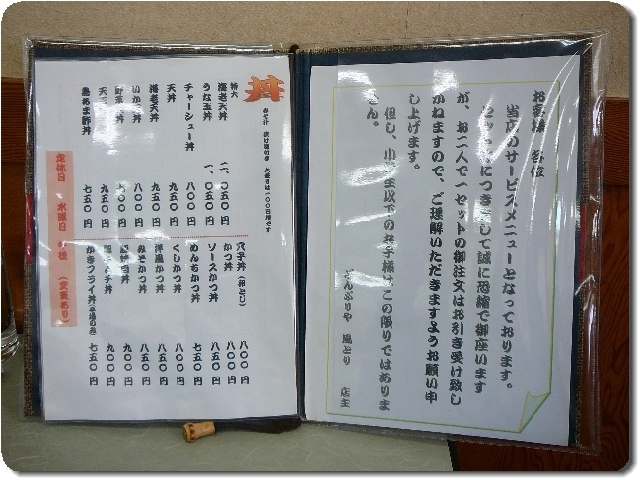 お客様 各位
当店のサービスメニューとなっております。
セットにつきまして誠に恐縮で御座います
が、お二人で一セットの御注文はお引き受け致し
かねますので、ご理解いただきますようお願い申
し上げます。
但し、小学生以下のお子様はこの限りではありま
せん。
どんぶりや 風とり 店主
丼
みそ汁 漬け物付き 大盛りは一〇〇円増です
特大
海老天丼 二、〇五〇円
うな玉丼 一、〇五〇円
チャーシュー丼 八〇〇円
天丼 九五〇円
海老天丼 九五〇円
いか天丼 八〇〇円
野菜天丼
天玉丼
七五〇円
穴子丼(卵とじ) 八〇〇円
かつ丼 八〇〇円
ソースかつ丼 八五〇円
めんちかつ丼 七五〇円
くしかつ丼 八〇〇円
洋風かつ丼 八五〇円
みそかつ丼 八五〇円
九〇〇円
九〇〇円
かきフライ丼(冬場のみ) 七五〇円
定休日 水曜日 (変更あり)